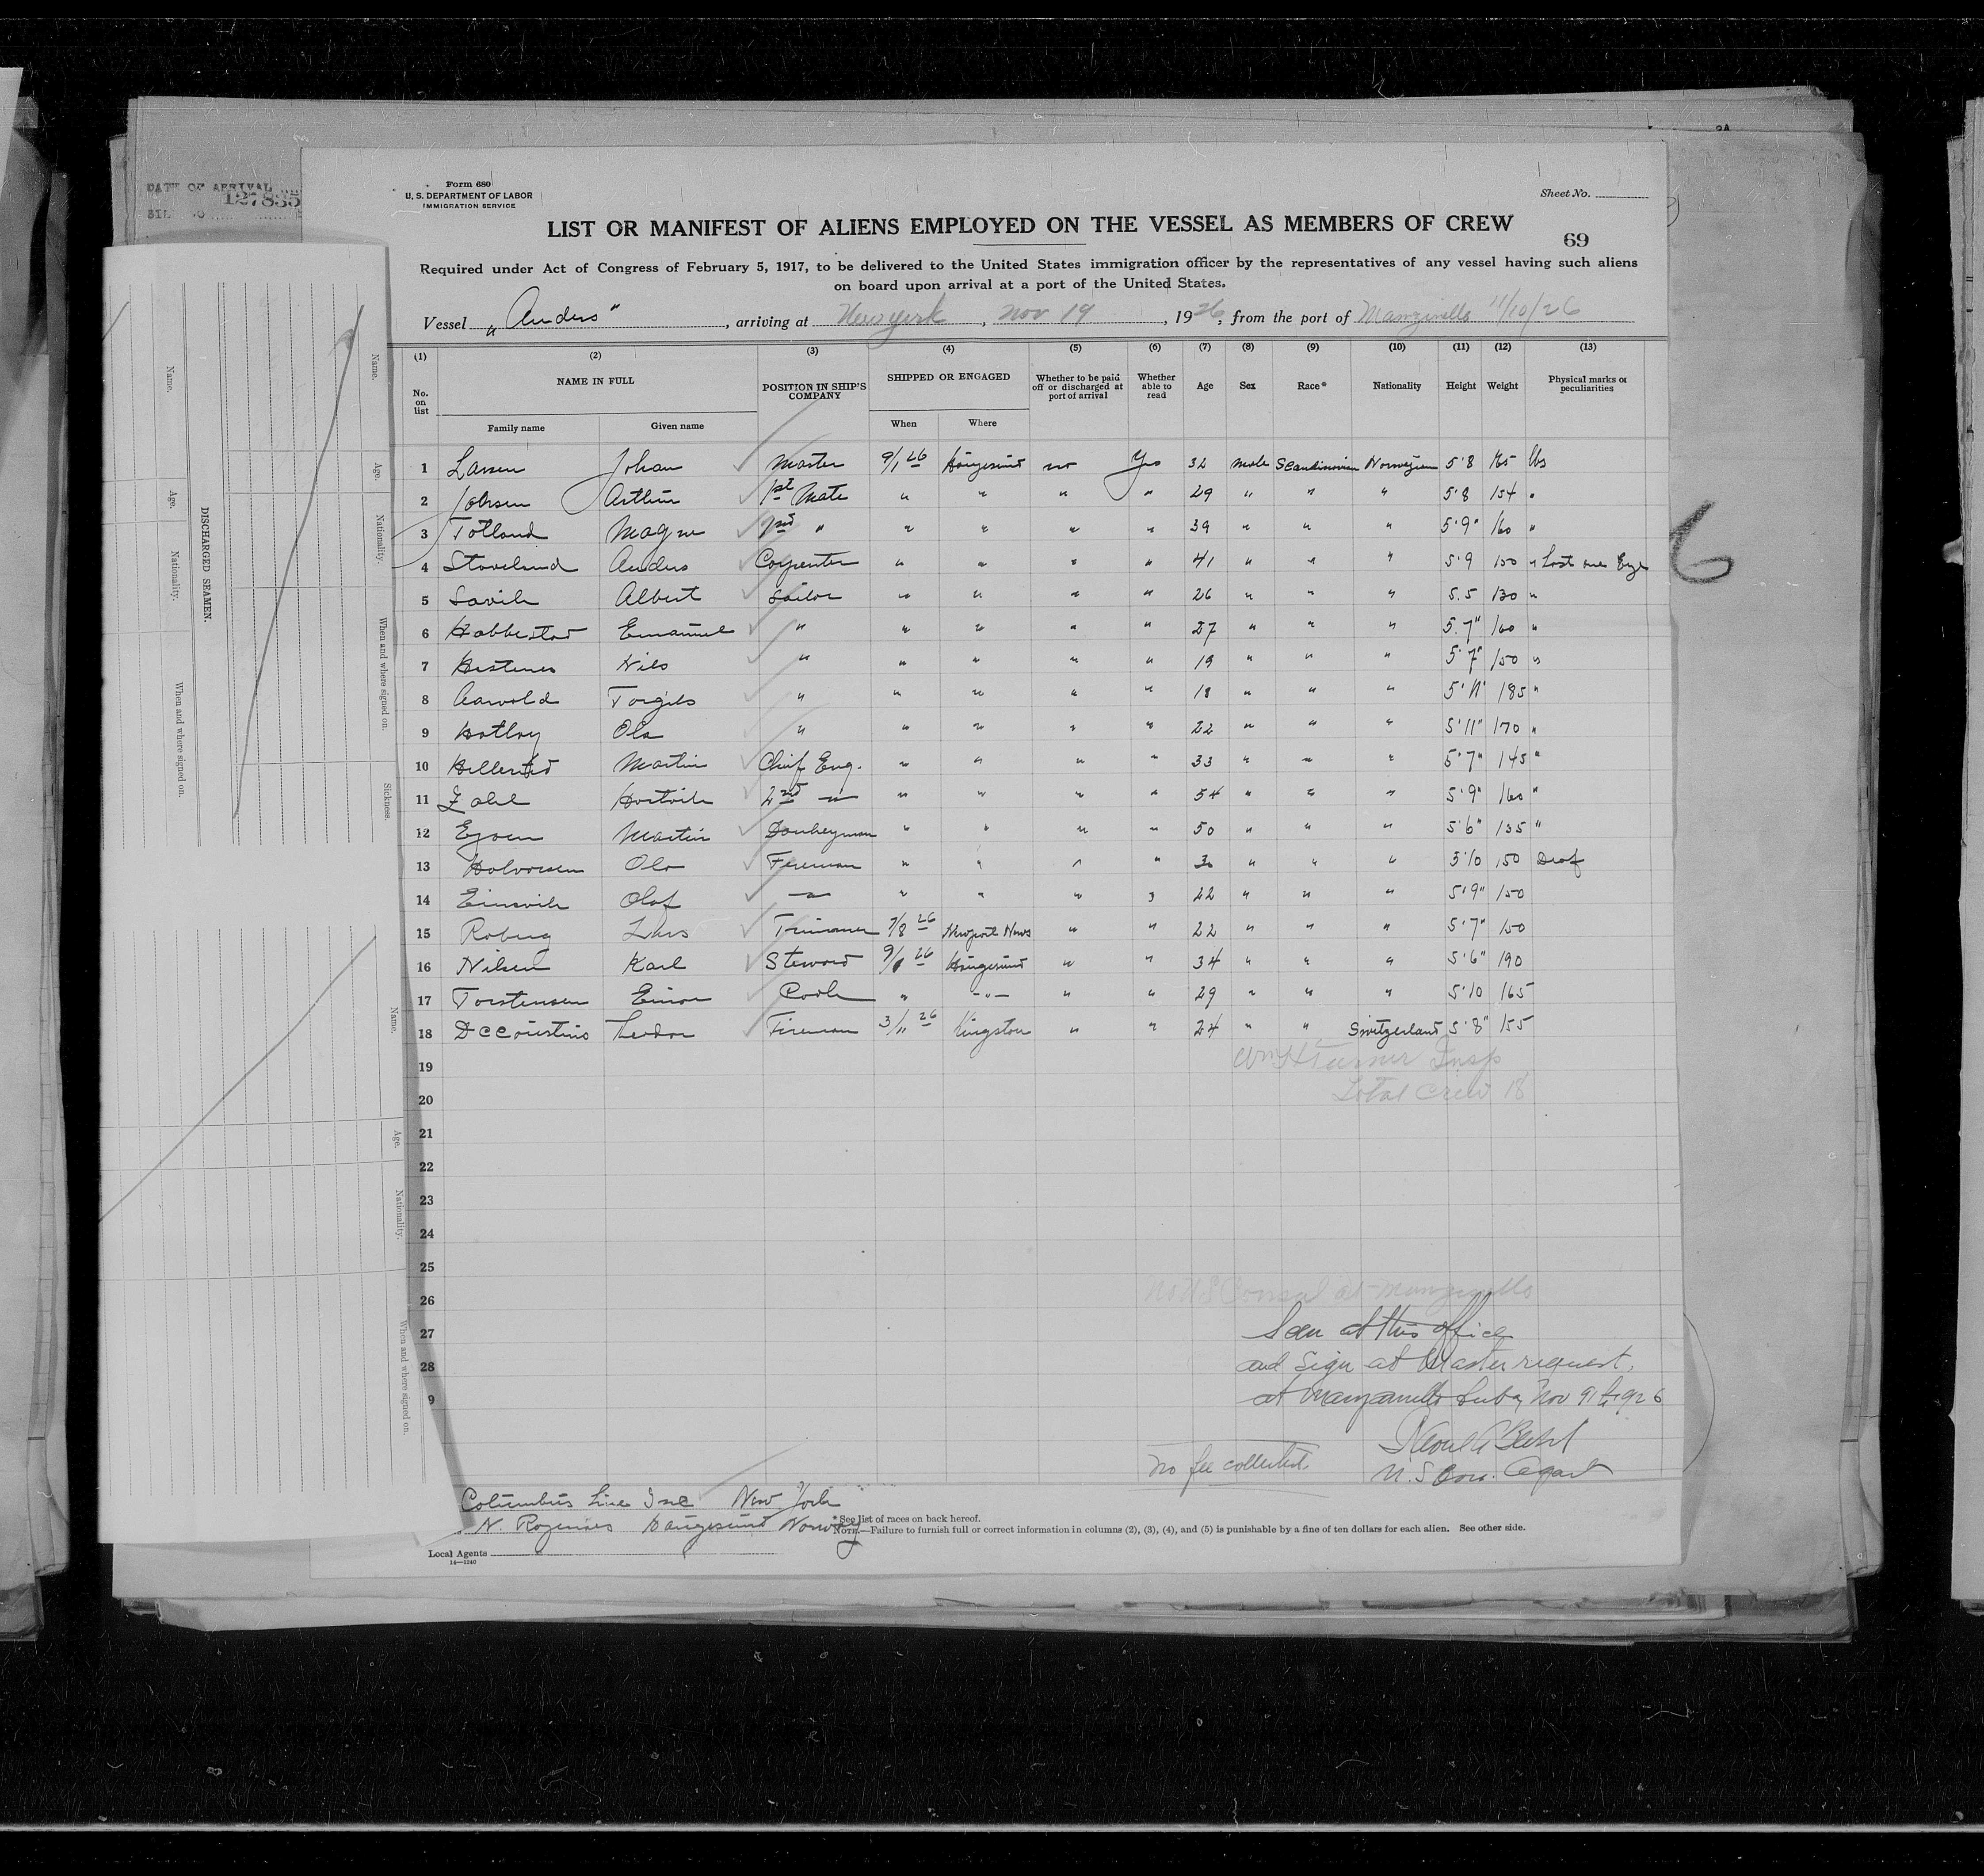 DATE OF ARRIVAL
127835
Form 680
U. S. DEPARTMENT OF LABOR
IMMIGRATION SERVICE
Sheet No.
LIST OR MANIFEST OF ALIENS EMPLOYED ON THE VESSEL AS MEMBERS OF CREW
69
Required under Act of Congress of February 5, 1917, to be delivered to the United States immigration officer by the representatives of any vessel having such aliens
on board upon arrival at a port of the United States.
Vessel „Anders“, arriving at New York, Nov 19, 1926, from the port of Manzinello 11/10/26
(1) (2) (3) (4) (5) (6) (7) (8) (9) (10) (11) (12) (13)
No. on list NAME IN FULL POSITION IN SHIP'S COMPANY SHIPPED OR ENGAGED Whether to be paid off or discharged at port of arrival Whether able to read Age Sex Race* Nationality Height Weight Physical marks or peculiarities
Family name Given name When Where
1 Larsen Johan Master 9/1 26 Haugesund no Yes 32 male Scandinavian Norwegian 5'8 165 lbs
2 Arthur 1st Mate " " " " 29 " " " 5'8 154 "
3 Totland Magne " " " " " 39 " " " 5'9" 160 "
4 Stoveland Anders Carpenter " " " " 41 " " " 5'9 150 " Lost one Eye
5 Albert Sailor " " " " 26 " " " 5.5 130 "
6 Emanuel " " " " " 27 " " " 5.7" 160 "
7 Hestenes Nils " " " " " 19 " " " 5'7" 150 "
8 Aarvold Torgils " " " " " 18 " " " 5'11" 185 "
9 Ola " " " " " 22 " " " 5'11" 170 "
10 Martin Chief Eng. " " " " 33 " " " 5'7" 145 "
11 2nd " " " " " 54 " " " 5'9" 160 "
12 Martin Donkeyman " " " " 50 " " " 5'6" 135 "
13 Halvorsen Ola Fireman " " " " 30 " " " 5'10 150 Deaf
14 Olaf " " " " " 22 " " " 5'9" 150
15 Roberg Lars Trimmer 7/8 26 Newport News " " 22 " " " 5'7" 150
16 Nilsen Karl Steward 9/1 26 Haugesund " " 34 " " " 5'6" 190
17 Torstensen Einar Cook " -"- " " 29 " " " 5'10 165
18 Theodor Fireman 3/11 26 Kingston " " 24 " " Switzerland 5'8" 155
19 Wm H Turner Insp
20 Total Crew 18
21
22
23
24
25
26 No U S Consul at Manzinello
27 Seen at this office
28 and Sign at Master request,
9 at Manzanillo Cuba, Nov 9th 1926
No fee collected.
U. S Con. Agent
6
Columbus Line Inc New York
Haugesund Norway
*See list of races on back hereof.
NOTE.—Failure to furnish full or correct information in columns (2), (3), (4), and (5) is punishable by a fine of ten dollars for each alien. See other side.
Local Agents
14—1240
DISCHARGED SEAMEN.
Name. Age. Nationality. When and where signed on.
Name. Age. Nationality. When and where signed on. Sickness.
Name. Age. Nationality. When and where signed on.